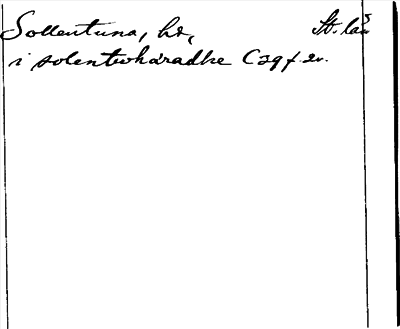 Sollentuna, hd, St. län
i solentwhäradhe C 29 f. 2v.